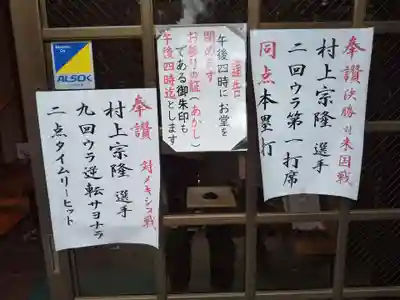 奉讃 決勝 対 米国戦
村上宗隆 選手
二回ウラ第一打席
同点本塁打
午後四時に お堂を
閉めます
お参りの証(あかし)
である御朱印も
午後四時迄とします
ALSOK
奉讃 対メキシコ戦
村上宗隆 選手
九回ウラ逆転サヨナラ
二点タイムリーヒット